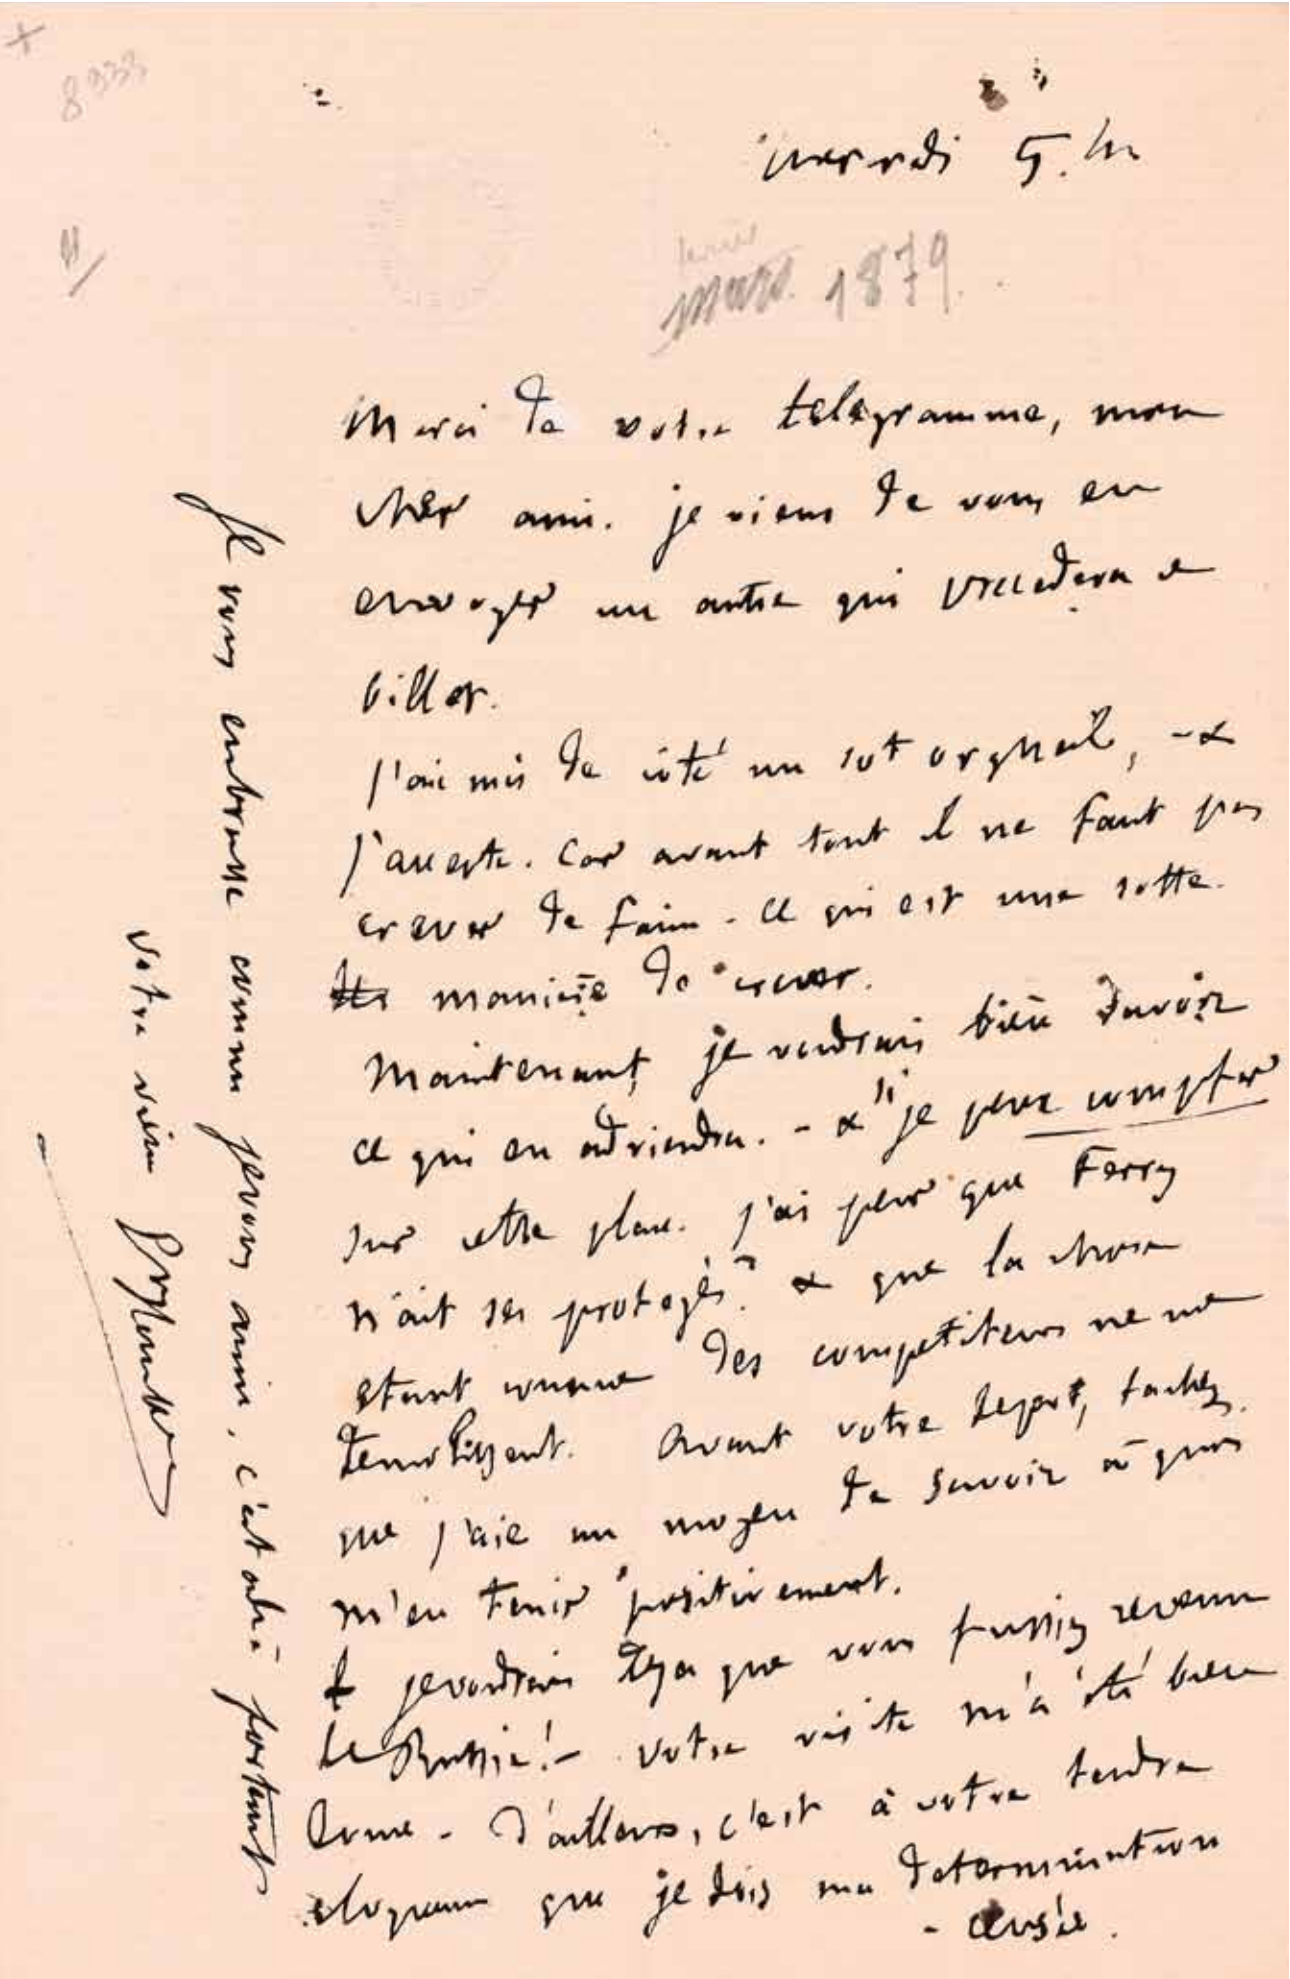 8933
mercredi 5. h
fevrier
mars. 1879.
Merci de votre telegramme, mon
cher ami. je viens de vous en
envoyer un autre qui precedera ce
billet.
J'ai mis de coté un sot orgueil, - &
j'accepte. Car avant tout il ne faut pas
crever de faim - ce qui est une sotte
maniere de crever.
Maintenant, je voudrais bien savoir
ce qui en adviendra. - & si je peux compter
sur cette place. J'ai peur que Ferry
n'ait ses protegés? & que la chose
etant connue des competiteurs ne me
demolissent. Avant votre depart, tachez
que j'aie un moyen de savoir à quoi
m'en tenir positivement.
je voudrais deja que vous fussiez revenu
de Russie! - Votre visite m'a été bien
bonne - D'ailleurs, c'est à votre tendre
eloquence que je dois ma determination
- censée.
Je vous embrasse comme je vous aime, c'est à dire fortement
Votre vieux Gve Flaubert